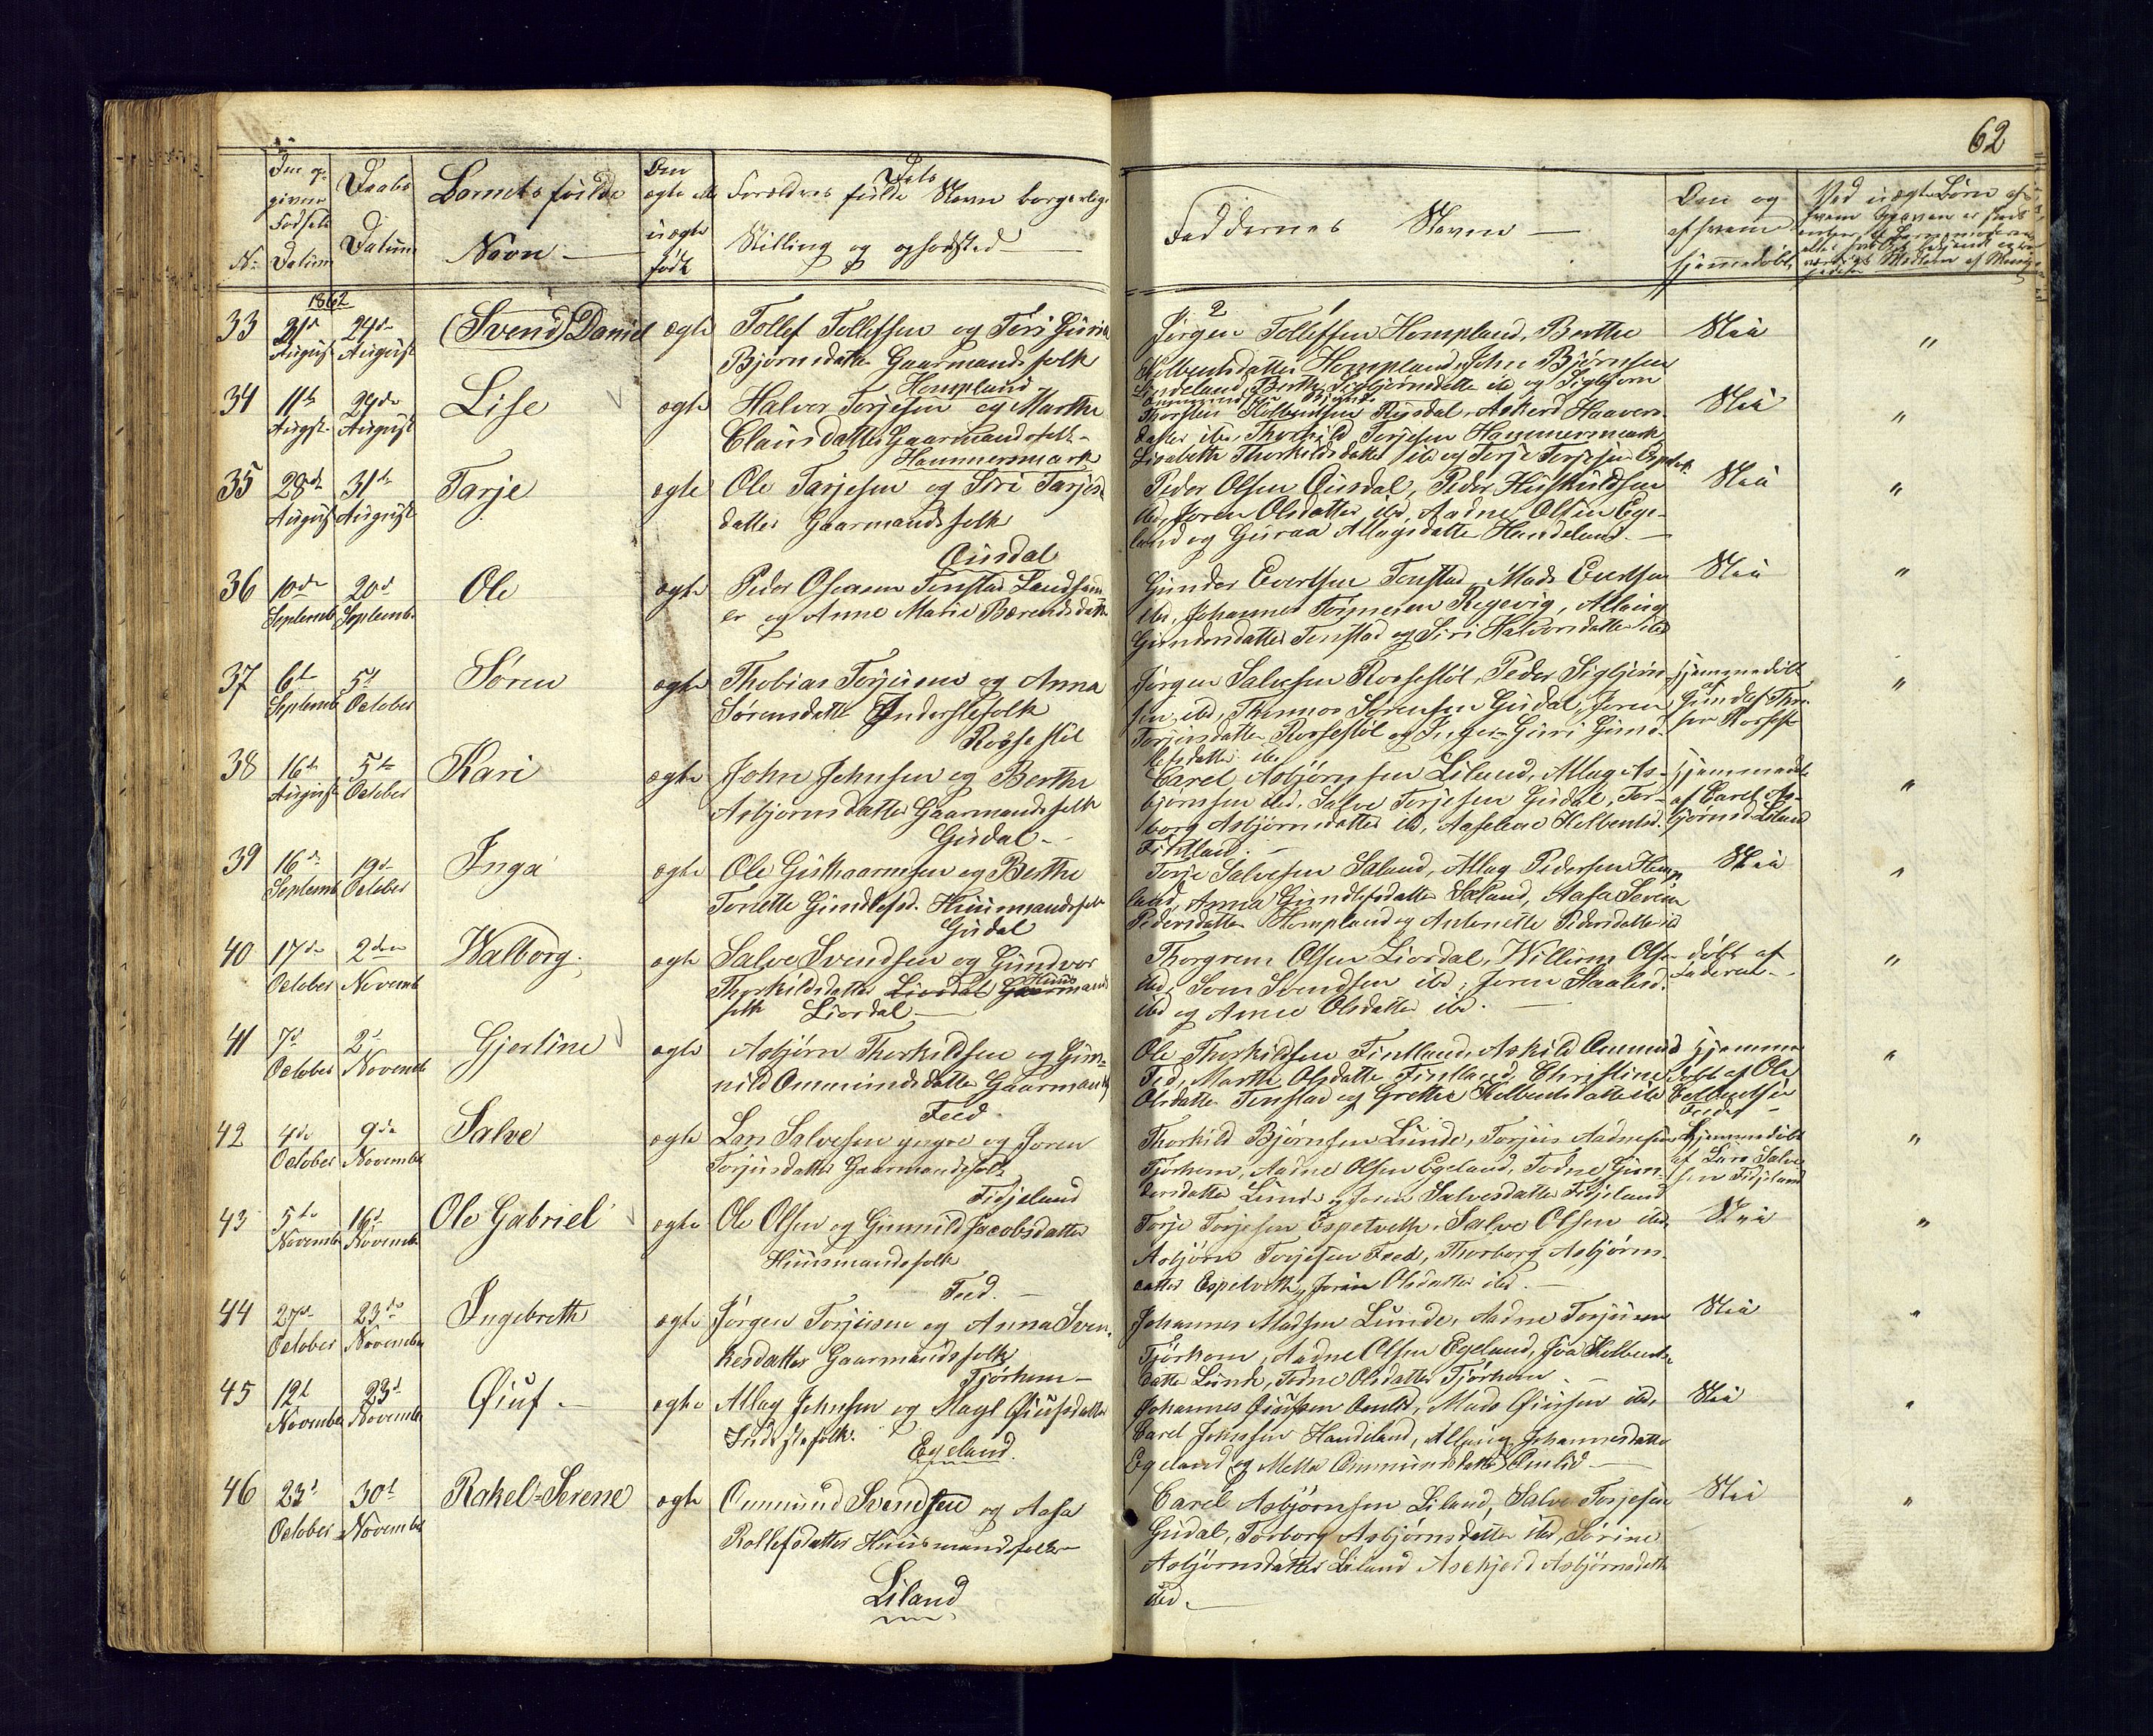 62
Den op-
givne
Fødsels
Datum
No
Daabs
Datum
Barnets fulde
Navn
Om
ægte ell
uægte
født
Dets
Forældres fulde Navn borgerlige
Stilling og opholdsted
Faddernes Navne
Om og
af hvem
hjemmedøbt
Ved uægte Børn af
1862
33 31d August 24de August (Svend) Daniel ægte
Tollef Tollefsen og Siri Guria
Bjørnsdatter Gaarmandsfolk
Hompland
Jørgen Tollefsen Hompland, Berthe
Helbentsdatter Hompland, John Bjørnsen
Lindeland, Berthe Sigbjørnsdatter ib og Sigbjørn
Nei "
34 11te Augst 24de August Lise ægte
Halvor Torjesen og Marthe
Clausdatter Gaarmandsfolk
Hammersmark
Thorsten Helbentsen Rysdal, Askerd Haavers-
datter ibd, Thorkild Torjesen Hammersmark
Lisabeth Thorkildsdatter ib og Torje Torjesen Espetvet
Nei "
35 28de August 31te August Tarje ægte
Ole Tarjesen og Siri Tarjes
datter Gaarmandsfolk
Ousdal
Peder Olsen Ousdal, Peder Huskuldsen
ibd, Joren Olsdatter ibd, Aadne Olsen Ege-
land og Guroa Atlagsdatter Handeland.
Nei "
36 10de Septemb 20d Septemb. Ole ægte
Peder Osensen Tonstad Landhand
er og Anne Marie Bærendsdatter
Gunder Evertsen Tonstad, Mads Evertsen
ibd, Johannes Tønnesen Regevig, Atlaug
Gundersdatter Tonstad og Siri Halvorsdatter ibd
Nei "
37 6te Septemb 5te October Søren ægte
Thobias Torjusen og Anna
Sørensdatter Inderstefolk
Rossestøl
Jørgen Salvesen Rossestøl, Peder Sigbjørn-
sen ibd, Thomas Sørensen Gudal, Joren
Torjusdatter Rossestøl og Inger Guri Gund-
lefsdatter ibd
hjemmedøbt
af
Gundlef Thor
sen Rossest
"
38 16de August 5te October Kari ægte
John Johnsen og Berthe
Asbjørnsdatter Gaarmandsfolk
Gudal
Carel Asbjørnsen Liland, Atlag As-
bjørnsen ibd, Salve Torjesen Gudal, Tor-
borg Asbjørnsdatter ib, Aaselene Helbentsd.
Fintland.
hjemmedøbt
af Carel As-
bjørnsd Liland
"
39 16de Septemb 19de October Inga ægte
Ole Guthormsen og Berthe
Tonette Gundlefsd. Huusmandsfolk
Gudal
Torje Salvesen Saland, Atlag Pedersen Homp
land, Anna Gundlefsdatter Saland, Aasa Serine
Pedersdatter Hompland og Antonette Pedersdatter ib
Nei "
40 17de October 2den Novemb Walborg. ægte
Salve Svendsen og Gundvor
Thorkildsdatter Liordal Huusmands
folk Liordal
Thorgrem Olsen Liordal, Willum Olse
ibd, Sven Svendsen ibd, Joren Staalesd.
ibd og Anne Olsdatter ib.
døbt af
Faderen
"
41 7d October 2d Novemb Gjertine ægte
Asbjørn Thorkildsen og Gun-
nild Ommundsdatter Gaarmandsf
Feed
Ole Thorkildsen Fintland, Askild Ommund
Fed, Marthe Olsdatter Fintland, Christine
Olsdatter Tonstad og Grethe Helbentsdatter ib
hjemme
døbt af Ole
Helbentsen
"
42 4de October 9de November Salve ægte
Lars Salvesen yngre og Joren
Torjusdatter Gaarmandsfolk
Fidjeland
Thorkild Bjørnsen Lunde, Torjus Aadnesen
Tjørhom, Aadne Olsen Egeland, Todne Gun-
dersdatter Lunde og Joren Salvesdatter Fidjeland
hjemmedøbt
af Lars Salve
sen Fidjeland
"
43 5te Novemb 16d Novemb Ole Gabriel ægte
Ole Olsen og Gunnild Jacobsdatter
Huusmandsfolk
Feed.
Torje Torjesen Espetveth, Salve Olsen ibd,
Asbjørn Torjesen Feed, Thorborg Asbjørns-
datter Espetveth, Joren Olsdatter ibd.
Nei "
44 27d October 23de November Ingebreth ægte
Jørgen Torjusen og Anna Sven
kesdatter Gaarmandsfolk
Tjørhom
Johannes Madsen Lunde, Aadne Torjusen
Tjørhom, Aadne Olsen Egeland, Joa Helbents-
datter Lunde, Todne Olsdatter Tjørhom
Nei "
45 12t November 23d November Øiuf ægte
Atlag Johnsen og Magl Øiufsdatter
Inderstefolk.
Egeland.
Johannes Øiufsen Omlid, Mads Øiufsen ibd,
Carel Johnsen Handeland, Atlaug Johannesdatter
Egeland og Mette Ommundsdatter Omlid
Nei "
46 23d October 30t November Rakel=Serene ægte
Ommund Svendsen og Aasa
Rollefsdatter Huusmandsfolk
Liland
Carel Asbjørnsen Liland, Salve Torjesen
Gudal, Torborg Asbjørnsdatter ibd, Sørine
Asbjørnsdatter Liland Askjerd Asbjørnsdatter
ibd.
Nei "